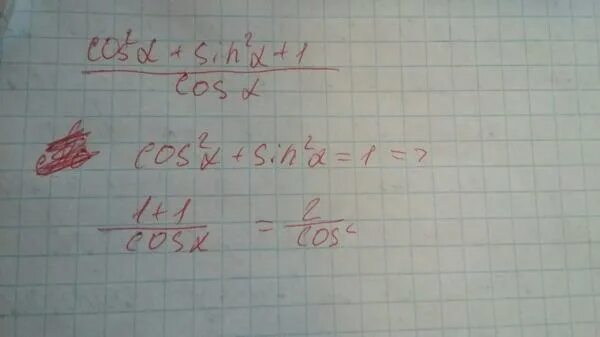 cos²α + sin²α + 1
cos α
cos²α + sin²α = 1 =>
1+1 / cosα = 2 / cos